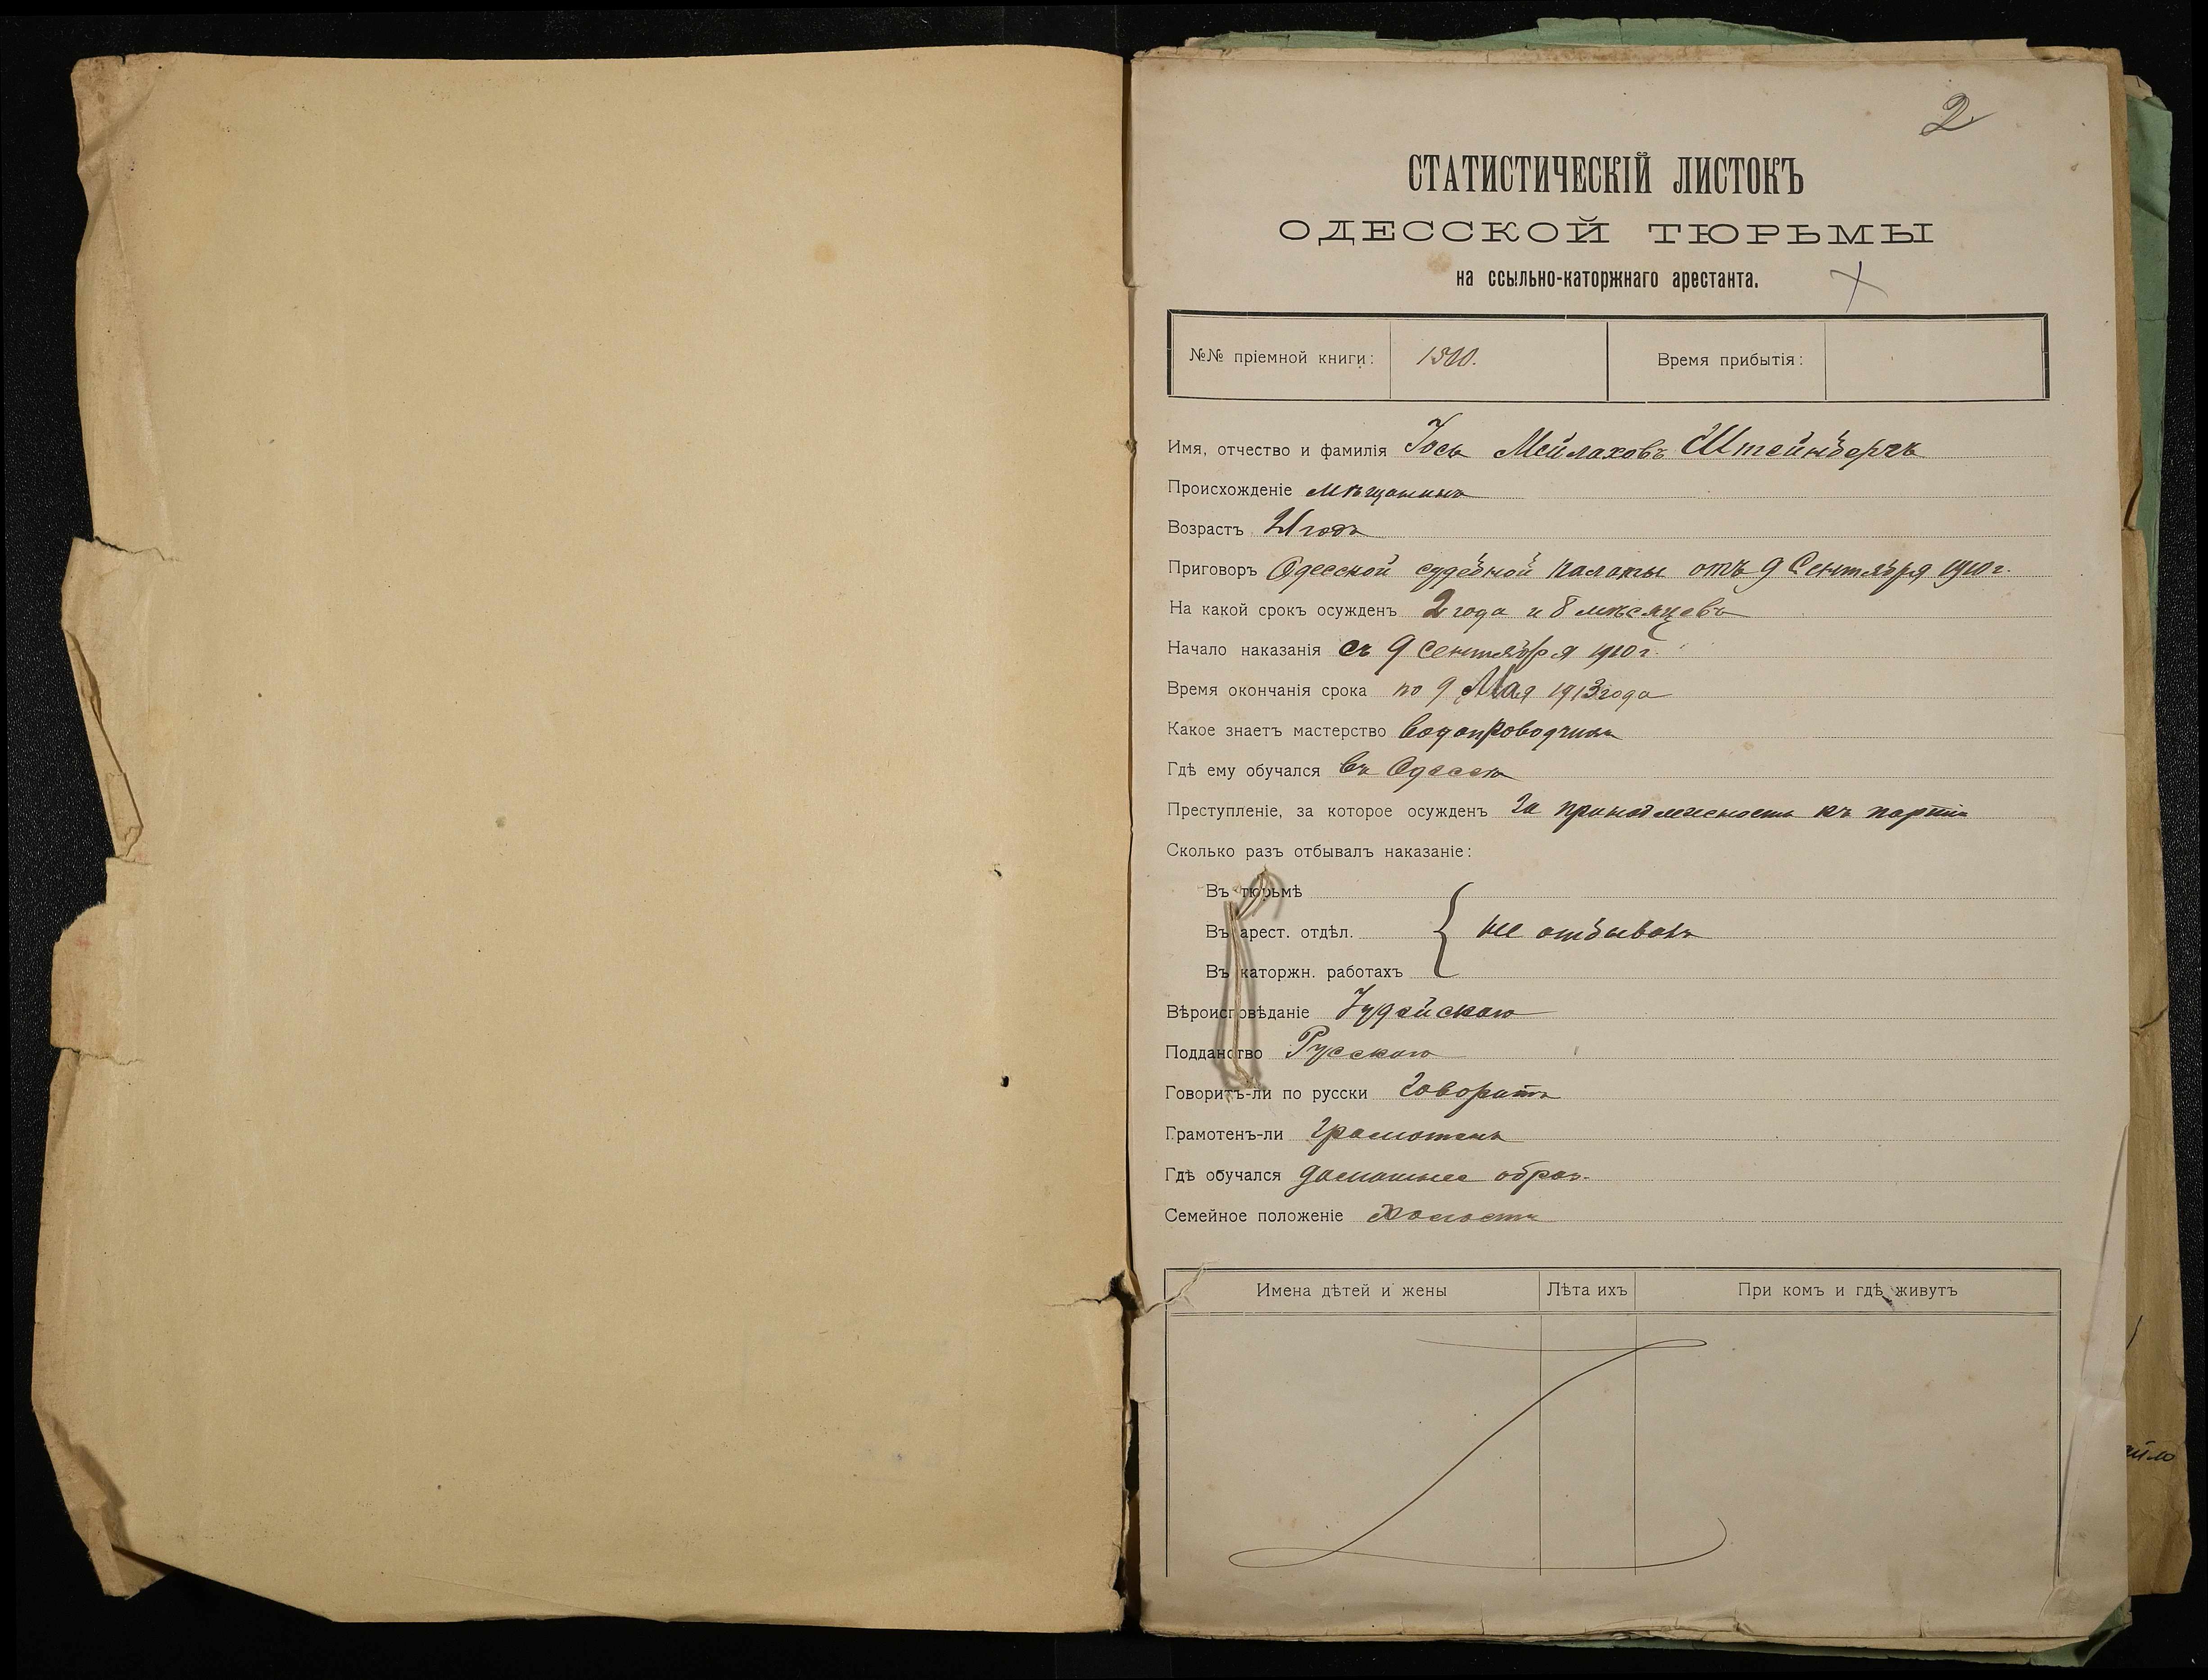 2
СТАТИСТИЧЕСКІЙ ЛИСТОКЪ
ОДЕССКОЙ ТЮРЬМЫ
на ссыльно-каторжнаго арестанта.
№№ пріемной книги: 1500. Время прибытія:
Имя, отчество и фамилія Іось Мейлаховъ Штейнбергъ
Происхожденіе мѣщанинъ
Возрастъ 21 годъ
Приговоръ Одесской судебной палаты отъ 9 Сентября 1910 г.
На какой срокъ осужденъ 2 года и 8 мѣсяцевъ
Начало наказанія съ 9 Сентября 1910 г.
Время окончанія срока по 9 Мая 1913 года
Какое знаетъ мастерство водопроводчикъ
Гдѣ ему обучался въ Одессѣ
Преступленіе, за которое осужденъ За принадлежность къ партіи
Сколько разъ отбывалъ наказаніе:
Въ тюрьмѣ
Въ арест. отдѣл. не отбывалъ
Въ каторжн. работахъ
Вѣроисповѣданіе Іудейскаго
Подданство Русскаго
Говоритъ-ли по русски Говоритъ
Грамотенъ-ли Грамотенъ
Гдѣ обучался домашнее образ.
Семейное положеніе Холостъ
Имена дѣтей и жены Лѣта ихъ При комъ и гдѣ живутъ